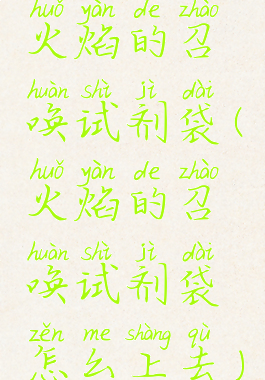 huǒ yàn de zhào
火焰的召
huàn shì jì dài
唤试剂袋(
huǒ yàn de zhào
火焰的召
huàn shì jì dài
唤试剂袋
zěn me shàng qù
怎么上去)